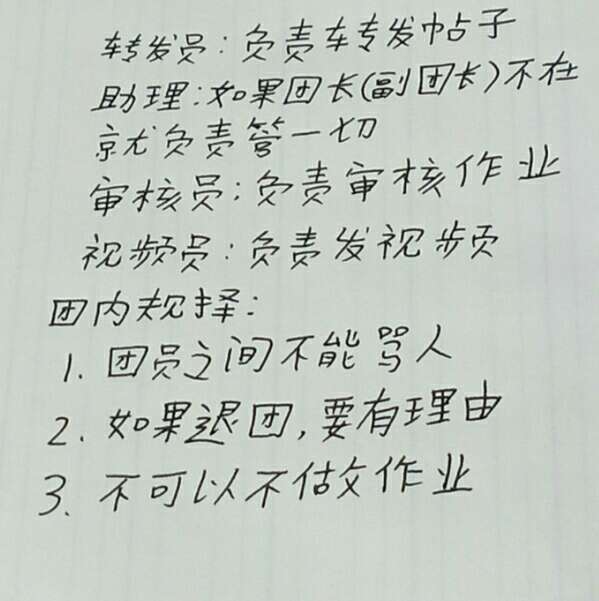 转发员:负责转发帖子
助理:如果团长(副团长)不在
就负责管一切
审核员:负责审核作业
视频员:负责发视频
团内规择:
1. 团员之间不能骂人
2. 如果退团,要有理由
3. 不可以不做作业